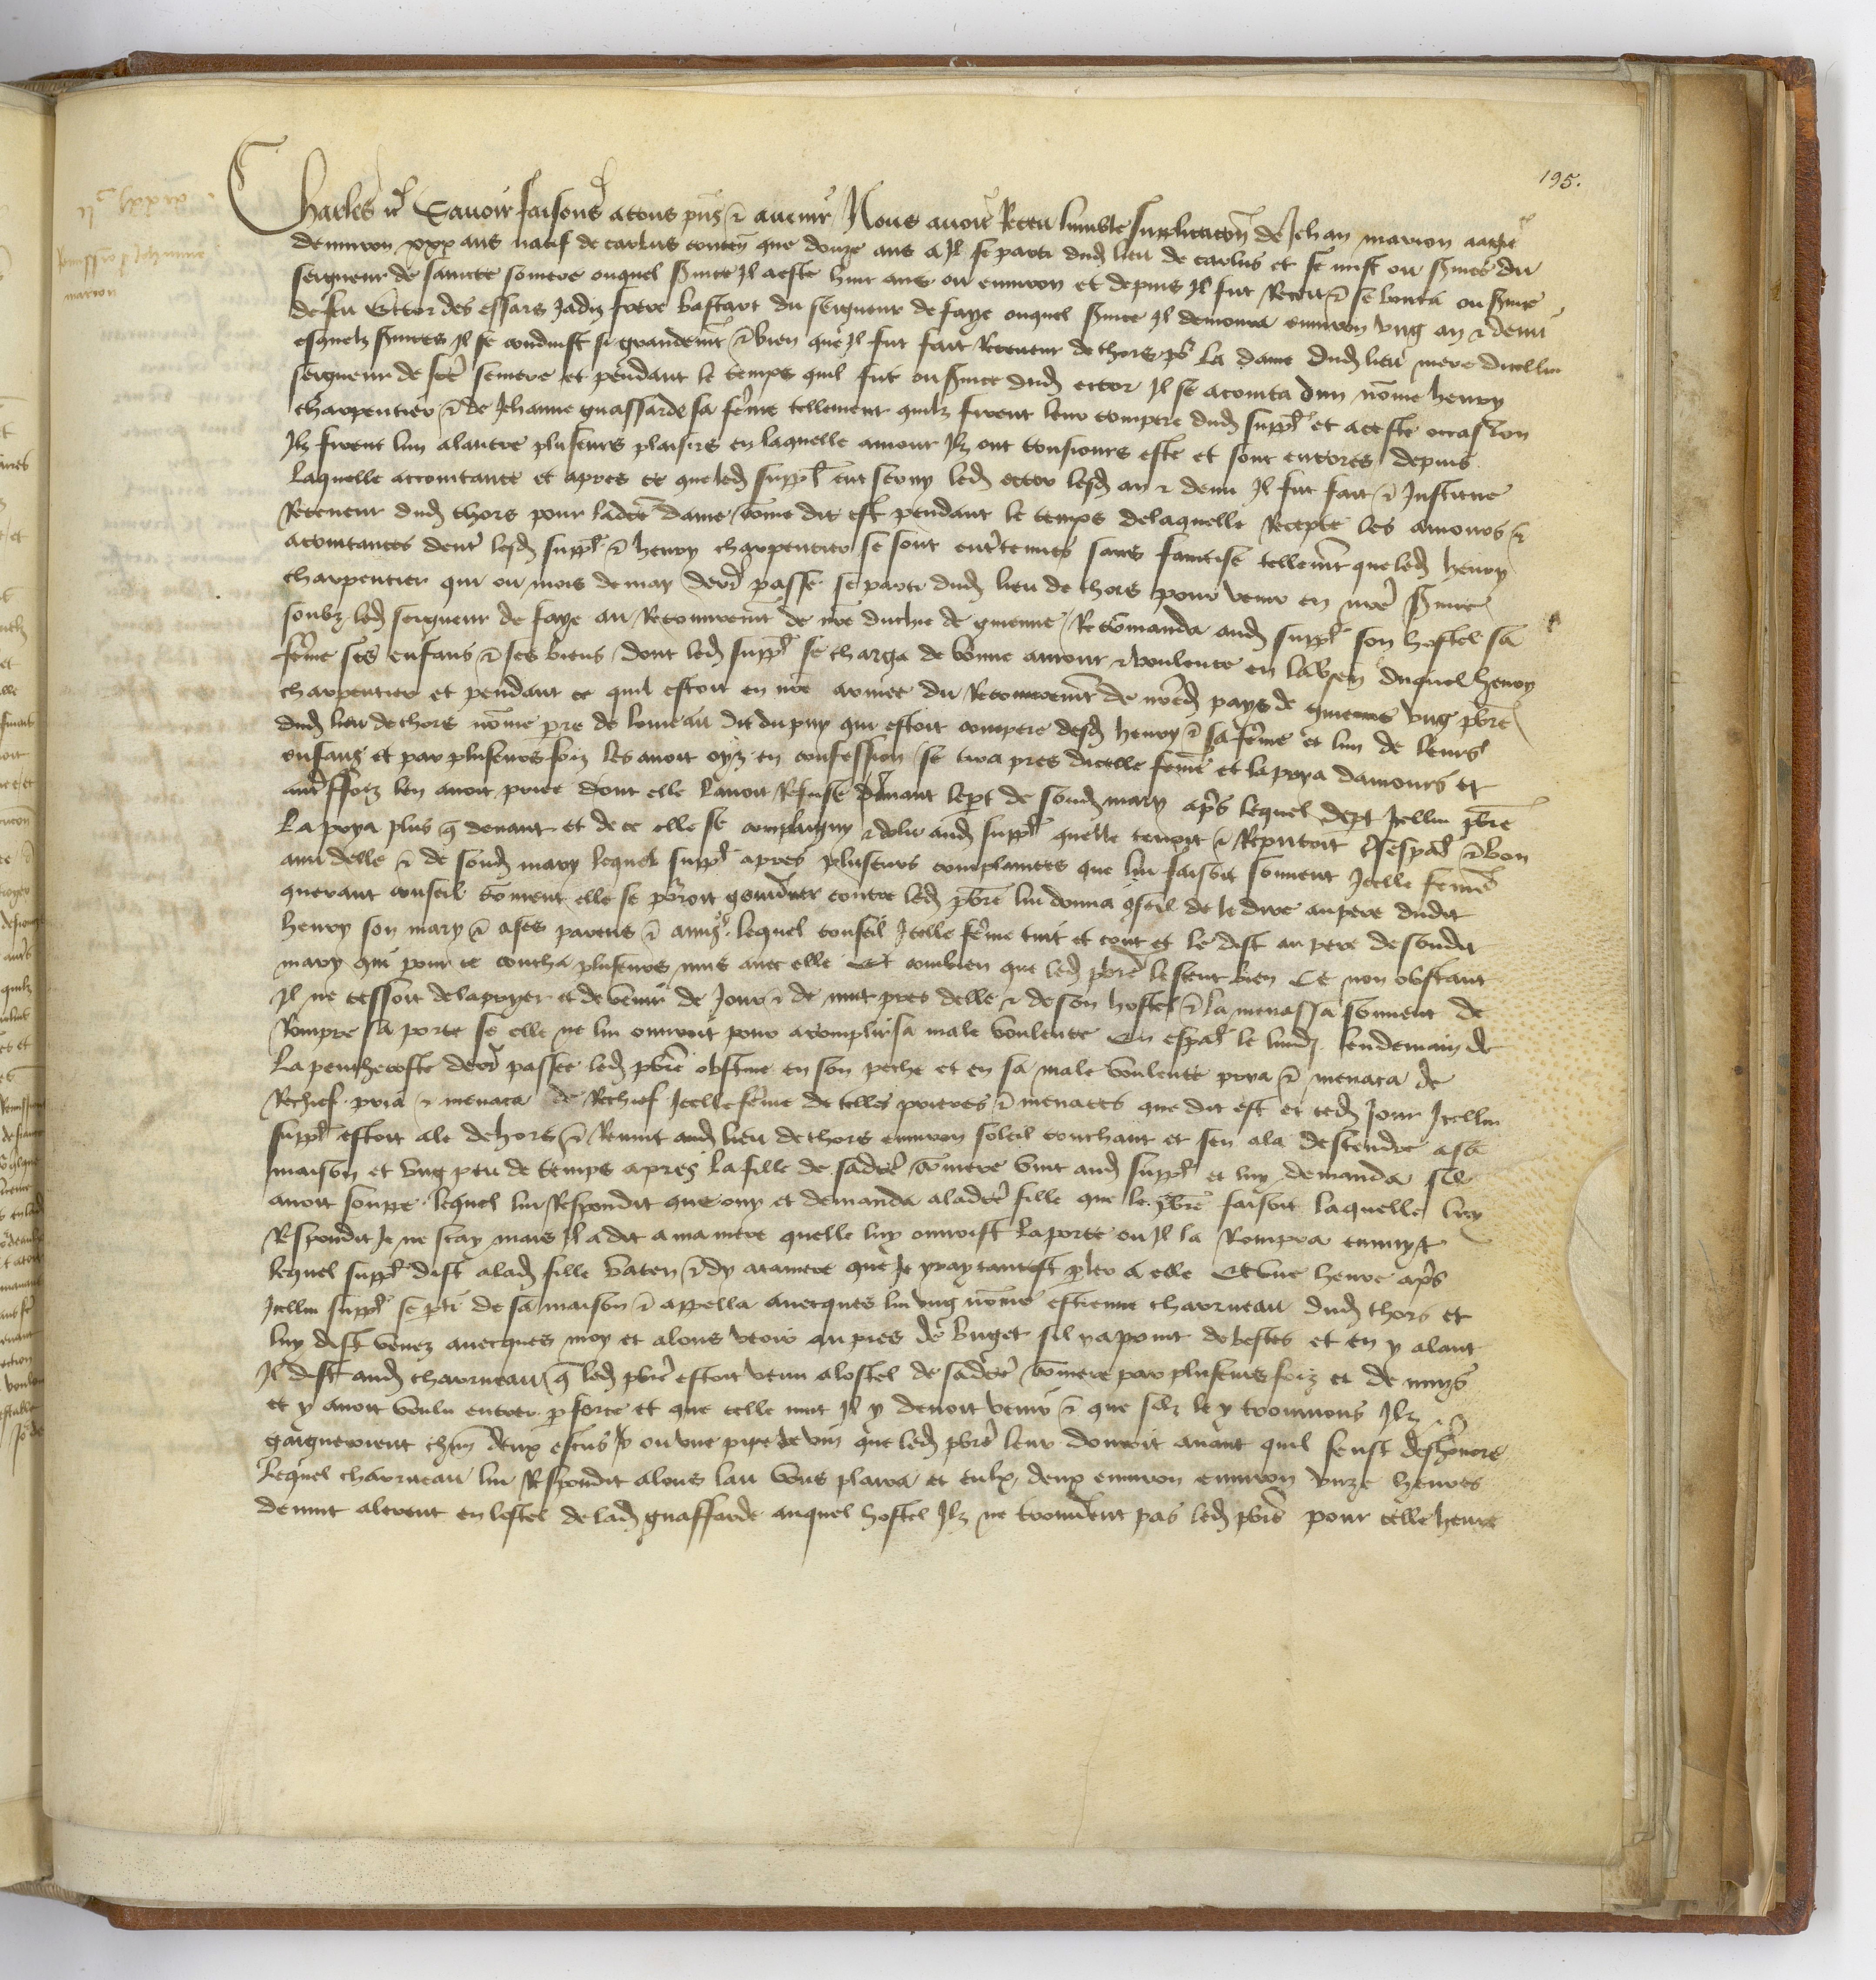 195.
Charles etc Savoir faisons a tous pns et avenir Nous avoir Receu lumble supplicacion de Jehan marion aagie
denviron xxx ans natif de carlus conten que douze ans a Il se parti dud lieu de carlus et se mist ou service du
seigneur de saincte somere ouquel service Il a este huit ans ou environ et depuis Il fut Receu et se bouta ou service
de feu Ector des essars Jadiz frere bastart du seigneur de faye ouquel service Il demoura environ ung an et demi
esquelz services Il se conduist si grandemt et bien que Il fut fait Receveur de thors pr la dame dud lieu mere dicellui
seigneur de scte semere et pendant le temps quil fut ou service dud ector Il se acointa dun nome henry
charpentier et de Jehanne guassarde sa feme tellement quilz firent leur compere dud suppl et a ceste occasion
Ilz firent lun a lautre pluseurs plaisirs en laquelle amour Ilz ont tousiours este et sont encores depuis
laquelle accointance et apres ce que led suppl eut servy led ector lesd an et demi Il fut fait et Institue
Receveur dud thors pour ladicte dame come dit est pendant le temps de laquelle Recepte les amours et
acointances dentre lesd suppl et henry charpentier se sont entretenues sans faintise tellemt que led henry
charpentier qui ou mois de may derr passe se parti dud lieu de thors pour venir en nre service
soubz led seigneur de faye au Recouvremt de nre duchie de guienne Recomanda aud suppl son hostel sa
feme ses enfans et ses biens dont led suppl se charga de bonne amour et voulente en labsen duquel henry
charpentier et pendant ce quil estoit en nre armee du Recouvremt de nred pays de guienne ung pbre
dud lieu de thors nome pre de lomeau dit dupuy qui estoit compere desd henry et sa feme et lun de leurs
enfans et par pluseurs foiz les avoit oyz en confession se tira pres dicelle feme et la prya damours et
autreffoiz len avoit priee dont elle lavoit Refuse devant lept de sond mary apres lequel dept Icellui pbre
la prya plus q devant et de ce elle se complaigny et dolu aud suppl quelle tenoit et Reputoit espal et bon
ami delle et de sond mary lequel suppl apres pluseurs complaintes que lui faisoit souvent Icelle feme
querant conseil coment elle se pourroit gouverner contre led pbre lui donna conseil de le dire au pere dudit
henry son mary et a ses parens et amis lequel conseil Icelle feme tint et crut et le dist au pere de sondit
mary qui pour ce coucha pluseurs nuis avec elle Et combien que led pbre le sceut bien Ce non obstant
Il ne cessoit de la pryer et de venir de Jour et de nuit pres delle et de son hostel et la menassa souvent de
Rompre sa porte se elle ne lui ouvroit pour acomplir sa male voulente En espal le lundi lendemain de
la penthecoste derr passee led pbre obstine en son peche et en sa male voulente prya et menaca de
Rechief pria et menaca de Rechief Icelle feme de telles prieres et menaces que dit est et ced Jour Icellui
suppl estoit ale dehors et Revint aud lieu de thors environ soleil couchant et sen ala descendre a sa
maison et ung peu de temps apres la fille de sadicte comere vint aud suppl et luy demanda sil
avoit souppe lequel lui Respondit que ouy et demanda a ladicte fille que le pbre faisoit laquelle luy
Respondit Je ne scay mais Il a dit a ma mere quelle luy ouvrist la porte ou Il la Rompra ennuyt
lequel suppl dist a lad fille Va ten et dy a ta mere que Je yray tantost pler a elle Et une heure apres
Icellui suppl se pti de sa maison et appella avecques lui ung nome estienne charrueau dud thors et
luy dist venez avecques moy et alons veoir au pres de buget sil y a point de bestes et en y alant
Il dist aud charrueau q led pbre estoit venu a lostel de sadicte comere par pluseurs foiz et de nuys
et y avoit voulu entrer p force et que celle nuit Il y devoit venir et que silz le y trouvoient Ilz
gaigneroient chun deux escus ou une pipe de vin que led pbre leur donroit avant quil feust deshonore
lequel charrueau lui Respondit alons lau vous plaira et eulx deux environ environ unze heures
de nuit alerent en lostel de lad guassarde auquel hostel Ilz ne trouverent pas led pbre pour celle heure